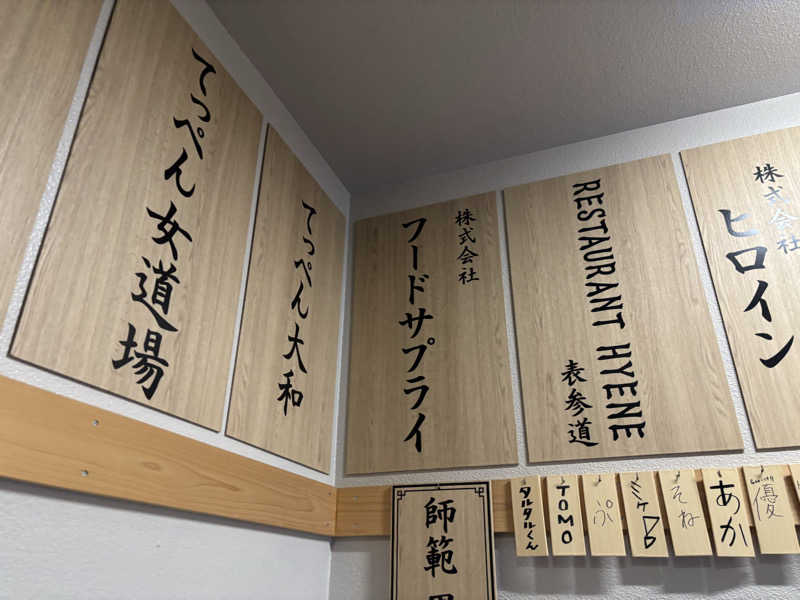 てっぺん女道場
てっぺん大和
株式会社
フードサプライ
RESTAURANT HYENE
表参道
株式会社
ヒロイン
師範
タルタルくん
TOMO
ぷ
そね
あか
優